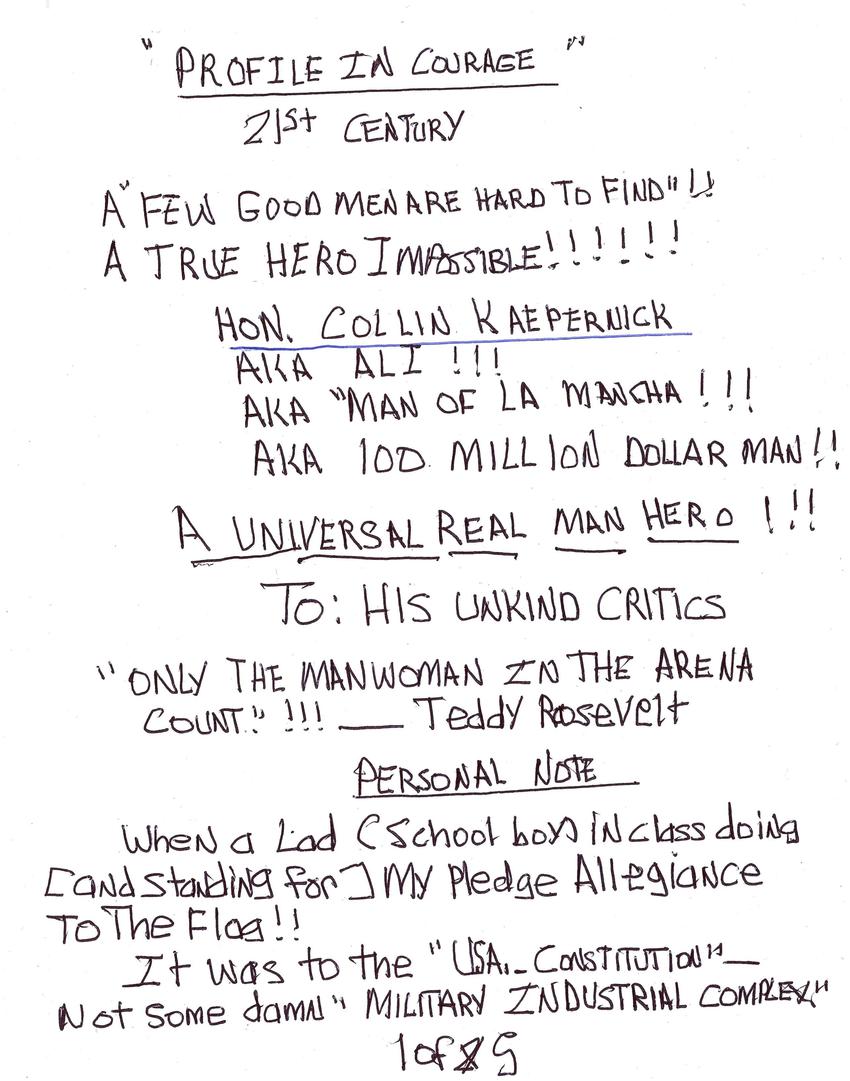 " PROFILE IN COURAGE "
21st CENTURY
A "FEW GOOD MEN ARE HARD TO FIND" !!
A TRUE HERO IMPOSSIBLE!!!!!!
HON. COLLIN KAEPERNICK
AKA ALI !!!
AKA "MAN OF LA MANCHA !!!
AKA 100 MILLION DOLLAR MAN!!
A UNIVERSAL REAL MAN HERO !!!
To: HIS UNKIND CRITICS
"ONLY THE MAN WOMAN IN THE ARENA
COUNT." !!! — Teddy Rosevelt
PERSONAL NOTE
When a Lad (School boy) in class doing
[and standing for] My Pledge Allegiance
To The Flag!!
It was to the "USA. - CONSTITUTION" —
Not Some damn "MILITARY INDUSTRIAL COMPLEX"
1 of 5